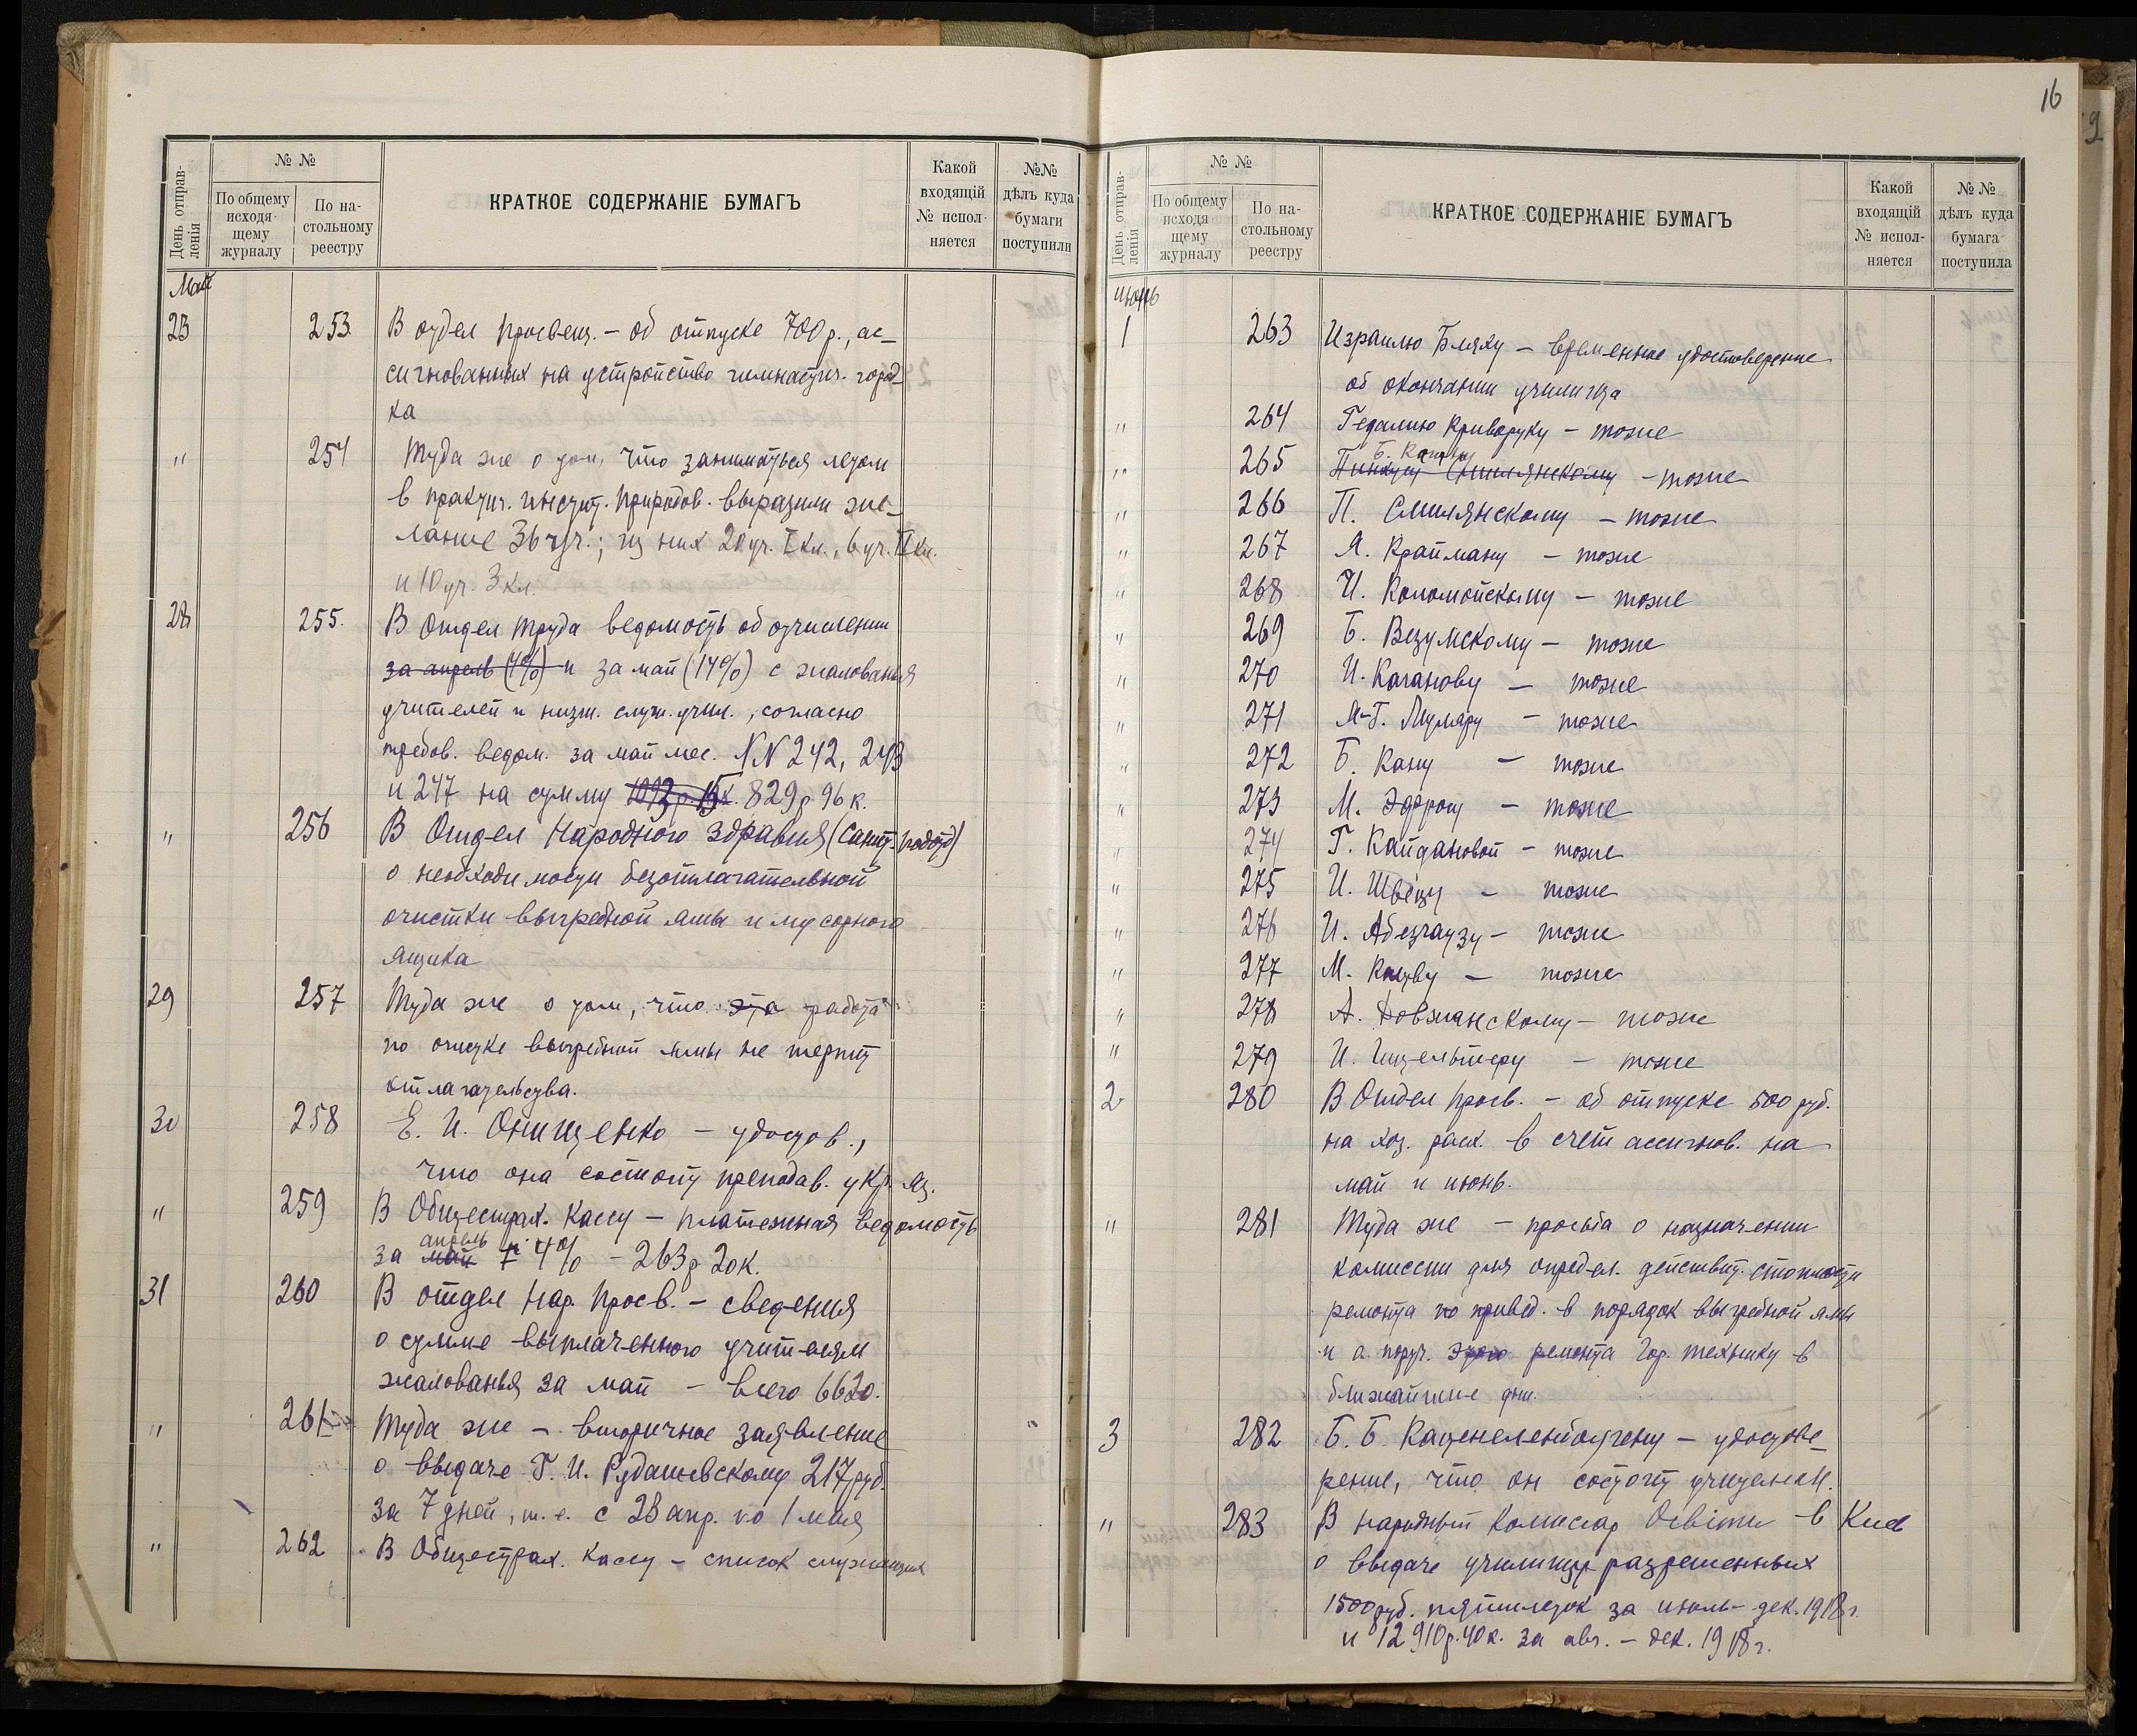 День отправ-
ленія
№ №
По общему
исходя-
щему
журналу
По на-
стольному
реестру
КРАТКОЕ СОДЕРЖАНІЕ БУМАГЪ
Какой
входящій
№ испол-
няется
№№
дѣлъ куда
бумаги
поступили
Май
23 253 В отдел просвещ. – об отпуске 700 р., ас-
сигнованных на устройство гимнастич. город-
ка
" 254 Туда же о том, что заниматься летом
в практич. инстит. природов. выразили же-
лание 36 уч.; из них 20 уч. I кл., 6 уч. II кл.
и 10 уч. 3 кл.
28 255. В Отдел Труда ведомость об отчислении
за апрель (4%) и за май (14%) с жалованья
учителей и низш. служ. учил., согласно
требов. ведом. за май мес. NN 242, 243
и 247 на сумму 829 р 96 к.
" 256 В Отдел Народного Здравия (Санит. подотд)
о необходимости безотлагательной
очистки выгребной ямы и мусорного
ящика
29 257 Туда же о том, что эта работа
по очистке выгребной ямы не терпит
отлагательства.
30 258 Е. И. Онищенко – удостов.,
что она состоит преподав. укр. яз.
" 259 В Общестрах. Кассу – платежная ведомость
апрель
за май 4% – 263 р 20 к.
31 260 В отдел Нар. Просв. – сведения
о сумме выплаченного учителям
жалованья за май – всего 6620.
" 261 Туда же – вторичное заявление
о выдаче Г. И. Рудашевскому 217 руб.
за 7 дней, т. е. с 23 апр. по 1 мая
" 262 В Общестрах. Кассу – список служащих
16
День отправ-
ленія
№ №
По общему
исходя
щему
журналу
По на-
стольному
реестру
КРАТКОЕ СОДЕРЖАНІЕ БУМАГЪ
Какой
входящій
№ испол-
няется
№ №
дѣлъ куда
бумага
поступила
июнь
1 263 Израилю Бляху – временное удостоверение
об окончании училища
" 264 Гедалию Криворуку – тоже
" 265 Пинхусу Смилянскому – тоже
" 266 П. Смилянскому – тоже
" 267 А. Крайману – тоже
" 268 И. Коломойскому – тоже
" 269 Б. Везумскому – тоже
" 270 И. Каганову – тоже
" 271 А-Г. Муляру – тоже
" 272 Б. Кану – тоже
" 273 М. Эфрону – тоже
" 274 Г. Кайдановой – тоже
" 275 И. Швецу – тоже
" 276 И. Абезгаузу – тоже
" 277 М. – тоже
" 278 А. Довжанскому – тоже
" 279 И. – тоже
2 280 В Отдел Просв. – об отпуске 500 руб.
на хоз. расх. в счет ассигнов. на
май и июнь.
" 281 Туда же – просьба о назначении
комиссии для определ. действит. стоимости
ремонта по привед. в порядок выгребной ямы
и о поруч. этого ремонта Гор. технику в
ближайшие дни.
3 282 Б. Б. Каценеленбогену – удостове-
рение, что он состоит учителем.
" 283 В Народный Комисар Освіти в Киев
о выдаче училищу разрешенных
1500 руб. за июль – дек. 1918 г.
и 12 910 р. 40 к. за авг. – дек. 1918 г.